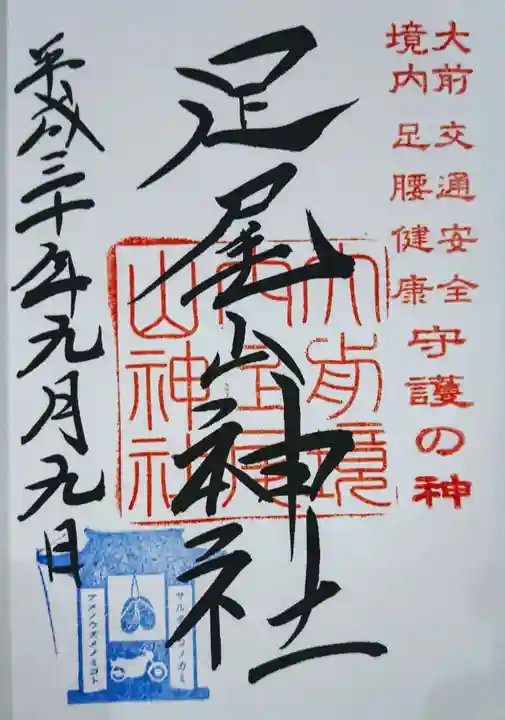 大前交通安全
境内足腰健康
守護の神
足尾山神社
大前境
内足尾
山神社
平成三十年九月九日
アメノウズメノミコト